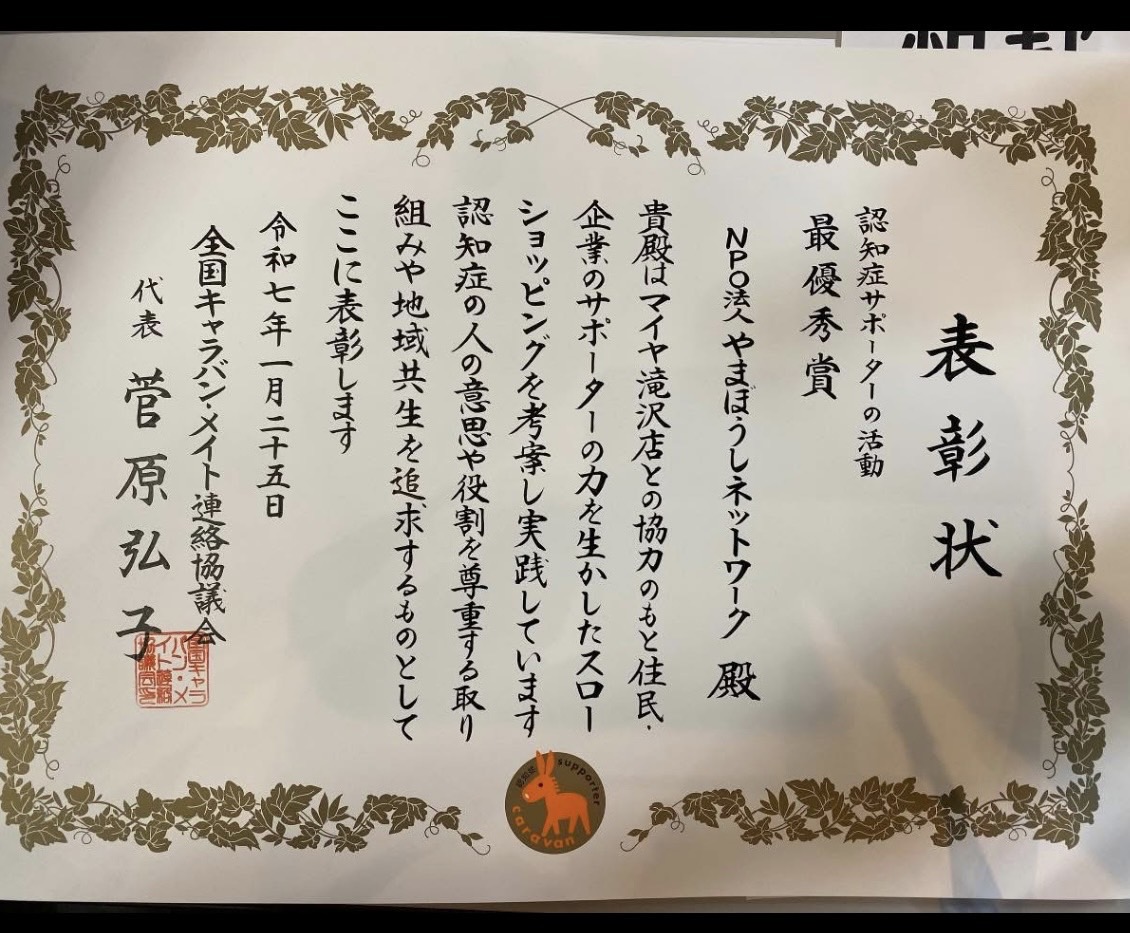 表彰状
認知症サポーターの活動
最優秀賞
NPO法人やまぼうしネットワーク 殿
貴殿はマイヤ滝沢店との協力のもと住民・
企業のサポーターの力を生かしたスロー
ショッピングを考案し実践しています
認知症の人の意思や役割を尊重する取り
組みや地域共生を追求するものとして
ここに表彰します
令和七年一月二十五日
全国キャラバン・メイト連絡協議会
代表 菅原弘子
全国キャラ
バン・メ
イト連絡
協議会印
認知症 supporter
caravan